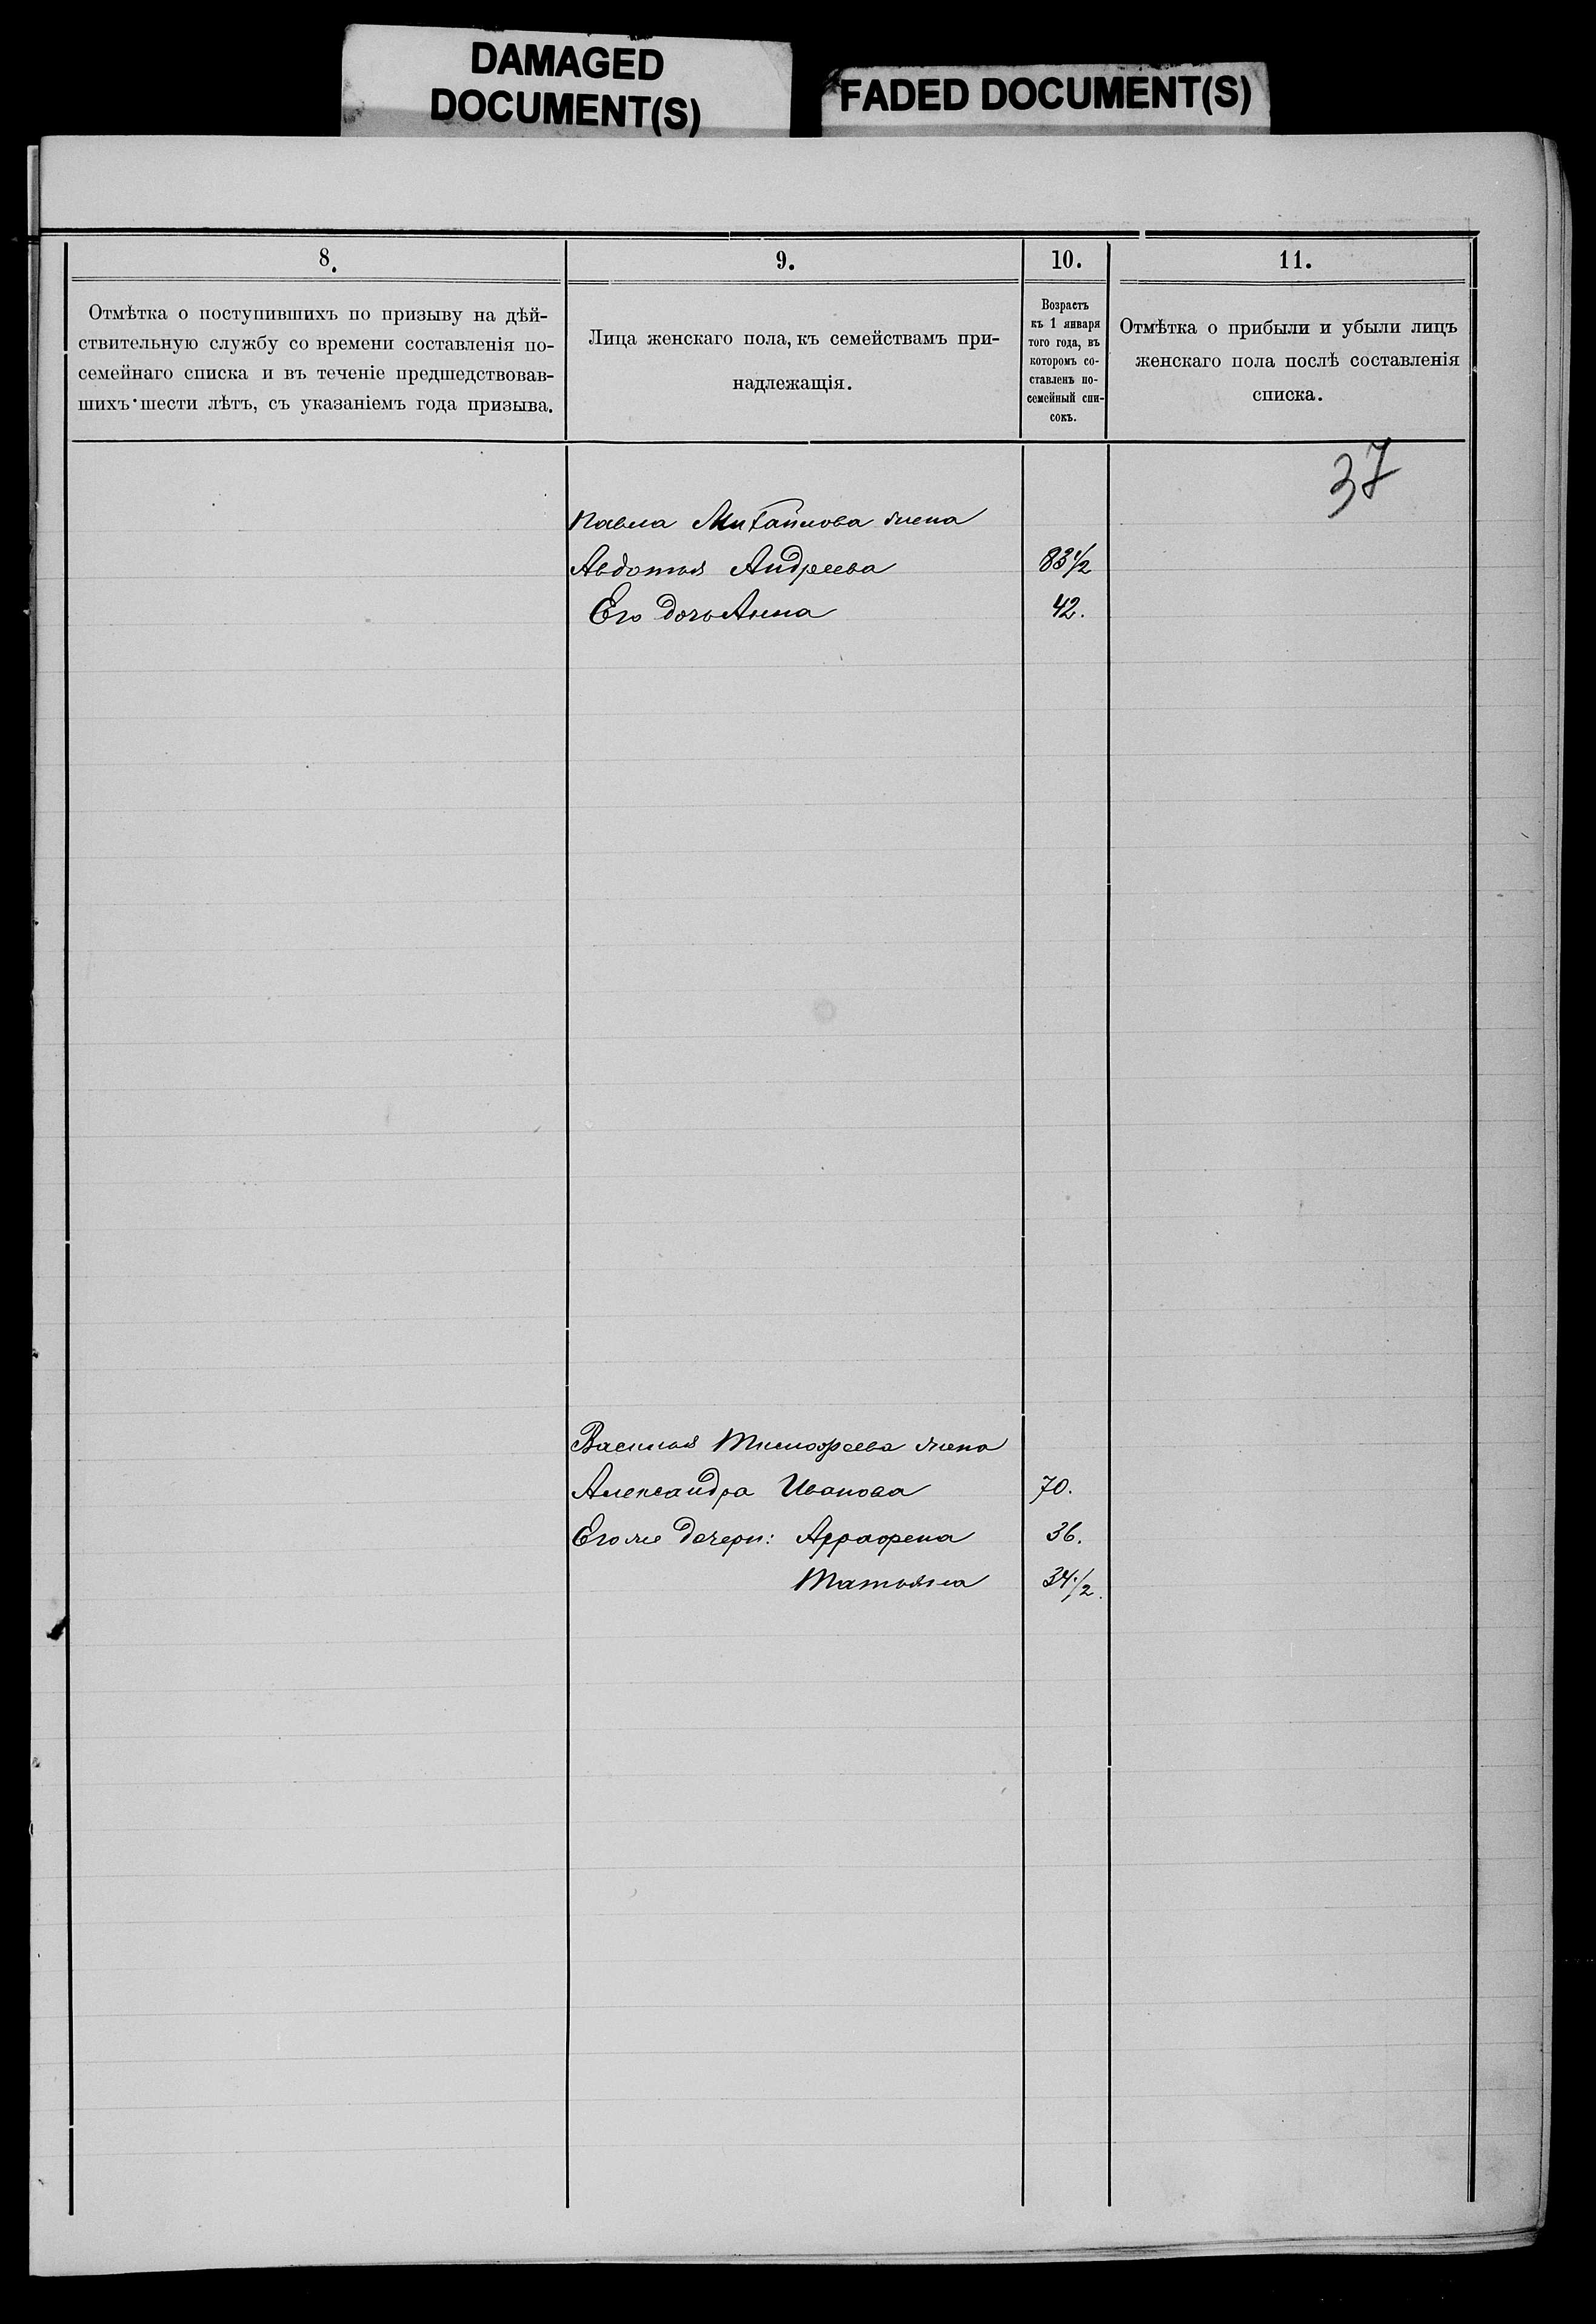 DAMAGED
DOCUMENT(S)
FADED DOCUMENT(S)
8.
Отмѣтка о поступившихъ по призыву на дѣй-
ствительную службу со времени составленія по-
семейнаго списка и въ теченіе предшедствовав-
шихъ шести лѣтъ, съ указаніемъ года призыва.
9.
Лица женскаго пола, къ семействамъ при-
надлежащія.
10.
Возрастъ
къ 1 января
того года, въ
которомъ со-
ставленъ по-
семейный спи-
сокъ.
11.
Отмѣтка о прибыли и убыли лицъ
женскаго пола послѣ составленія
списка.
37
Павла Михаилова жена
Авдотья Андреева 83 1/2
Его дочь Анна 42.
Василья Тимофеева жена
Александра Иванова 70.
Его же дочери: Аграфена 36.
Матьяна 34 1/2.